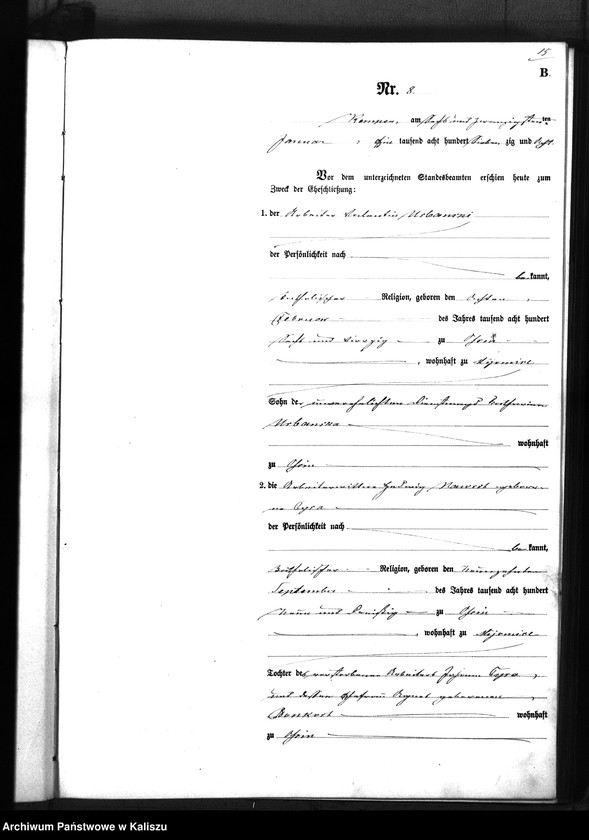 15
B.
Nr. 8.
Kempen, am sechs und zwanzigsten ten
Januar, Ein tausend acht hundert sieben zig und Acht.
Vor dem unterzeichneten Standesbeamten erschien heute zum
Zweck der Eheschließung:
1. der Arbeiter Valentin Urbanski
der Persönlichkeit nach
be kannt,
katholischer Religion, geboren den
Februar des Jahres tausend acht hundert
sechs und vierzig zu
, wohnhaft zu Mijomice
Sohn der unverehelichten Dienstmagd
Urbanska
wohnhaft
zu
2. die Arbeiterwittwe Hedwig Nawrot gebore-
ne
der Persönlichkeit nach
be kannt,
katholischer Religion, geboren den neunzehnten
September des Jahres tausend acht hundert
neun und dreißig zu
, wohnhaft zu Mijomice
Tochter des verstorbenen Arbeiters
und dessen Ehefrau Agnes geborenen
wohnhaft
zu
Archiwum Państwowe w Kaliszu